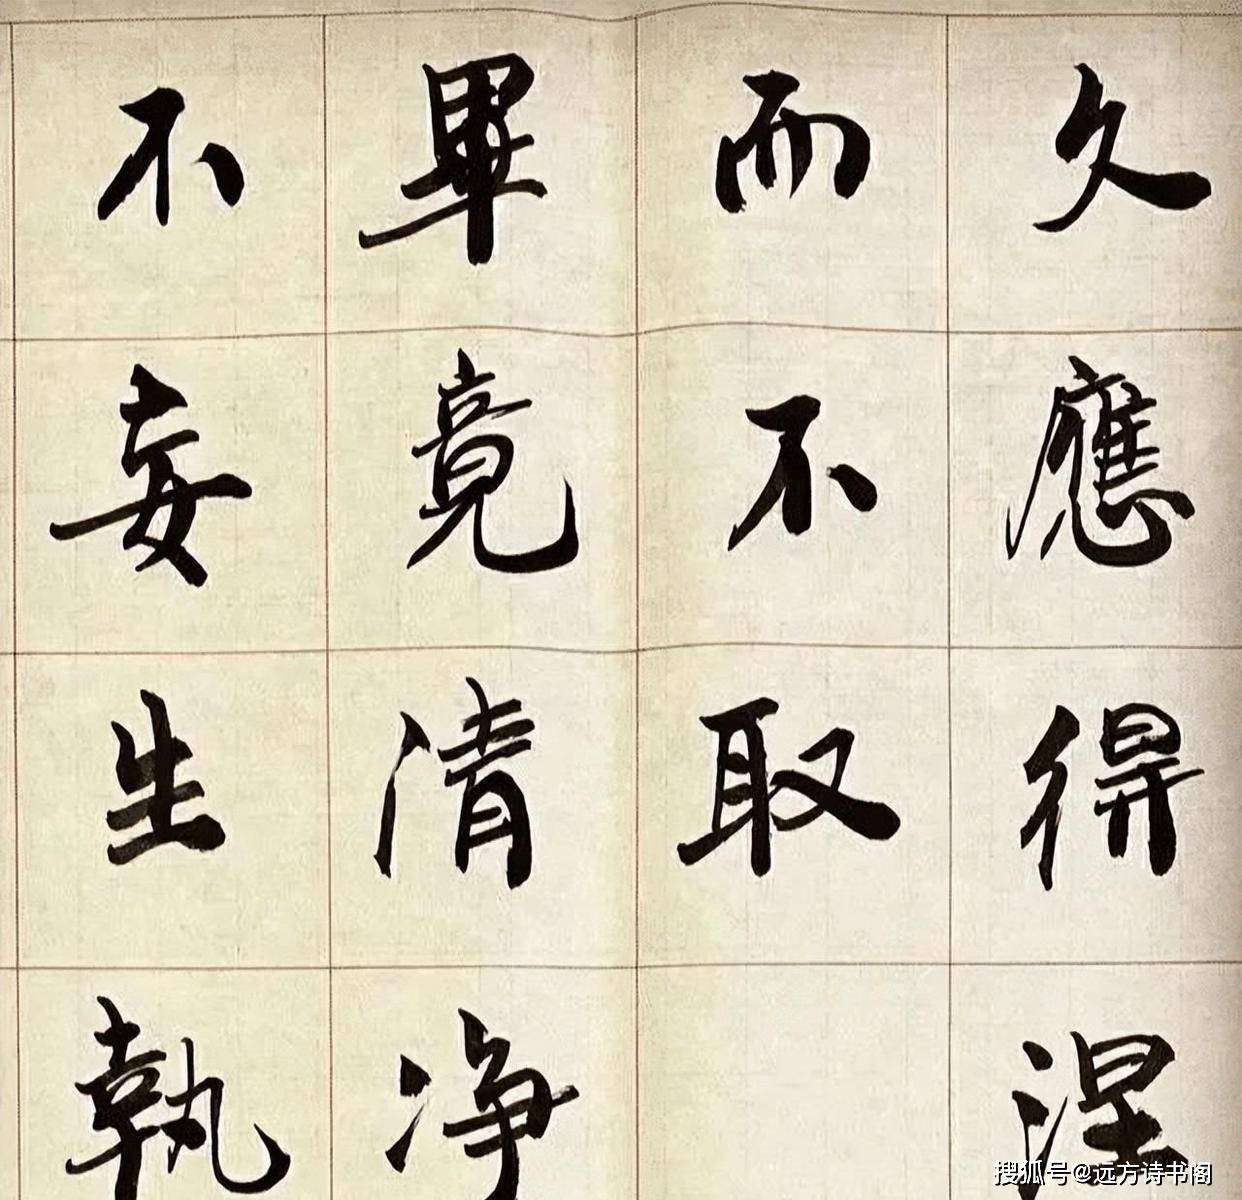 久應得涅
而不取
畢竟清净
不妄生執
搜狐号@远方诗书阁